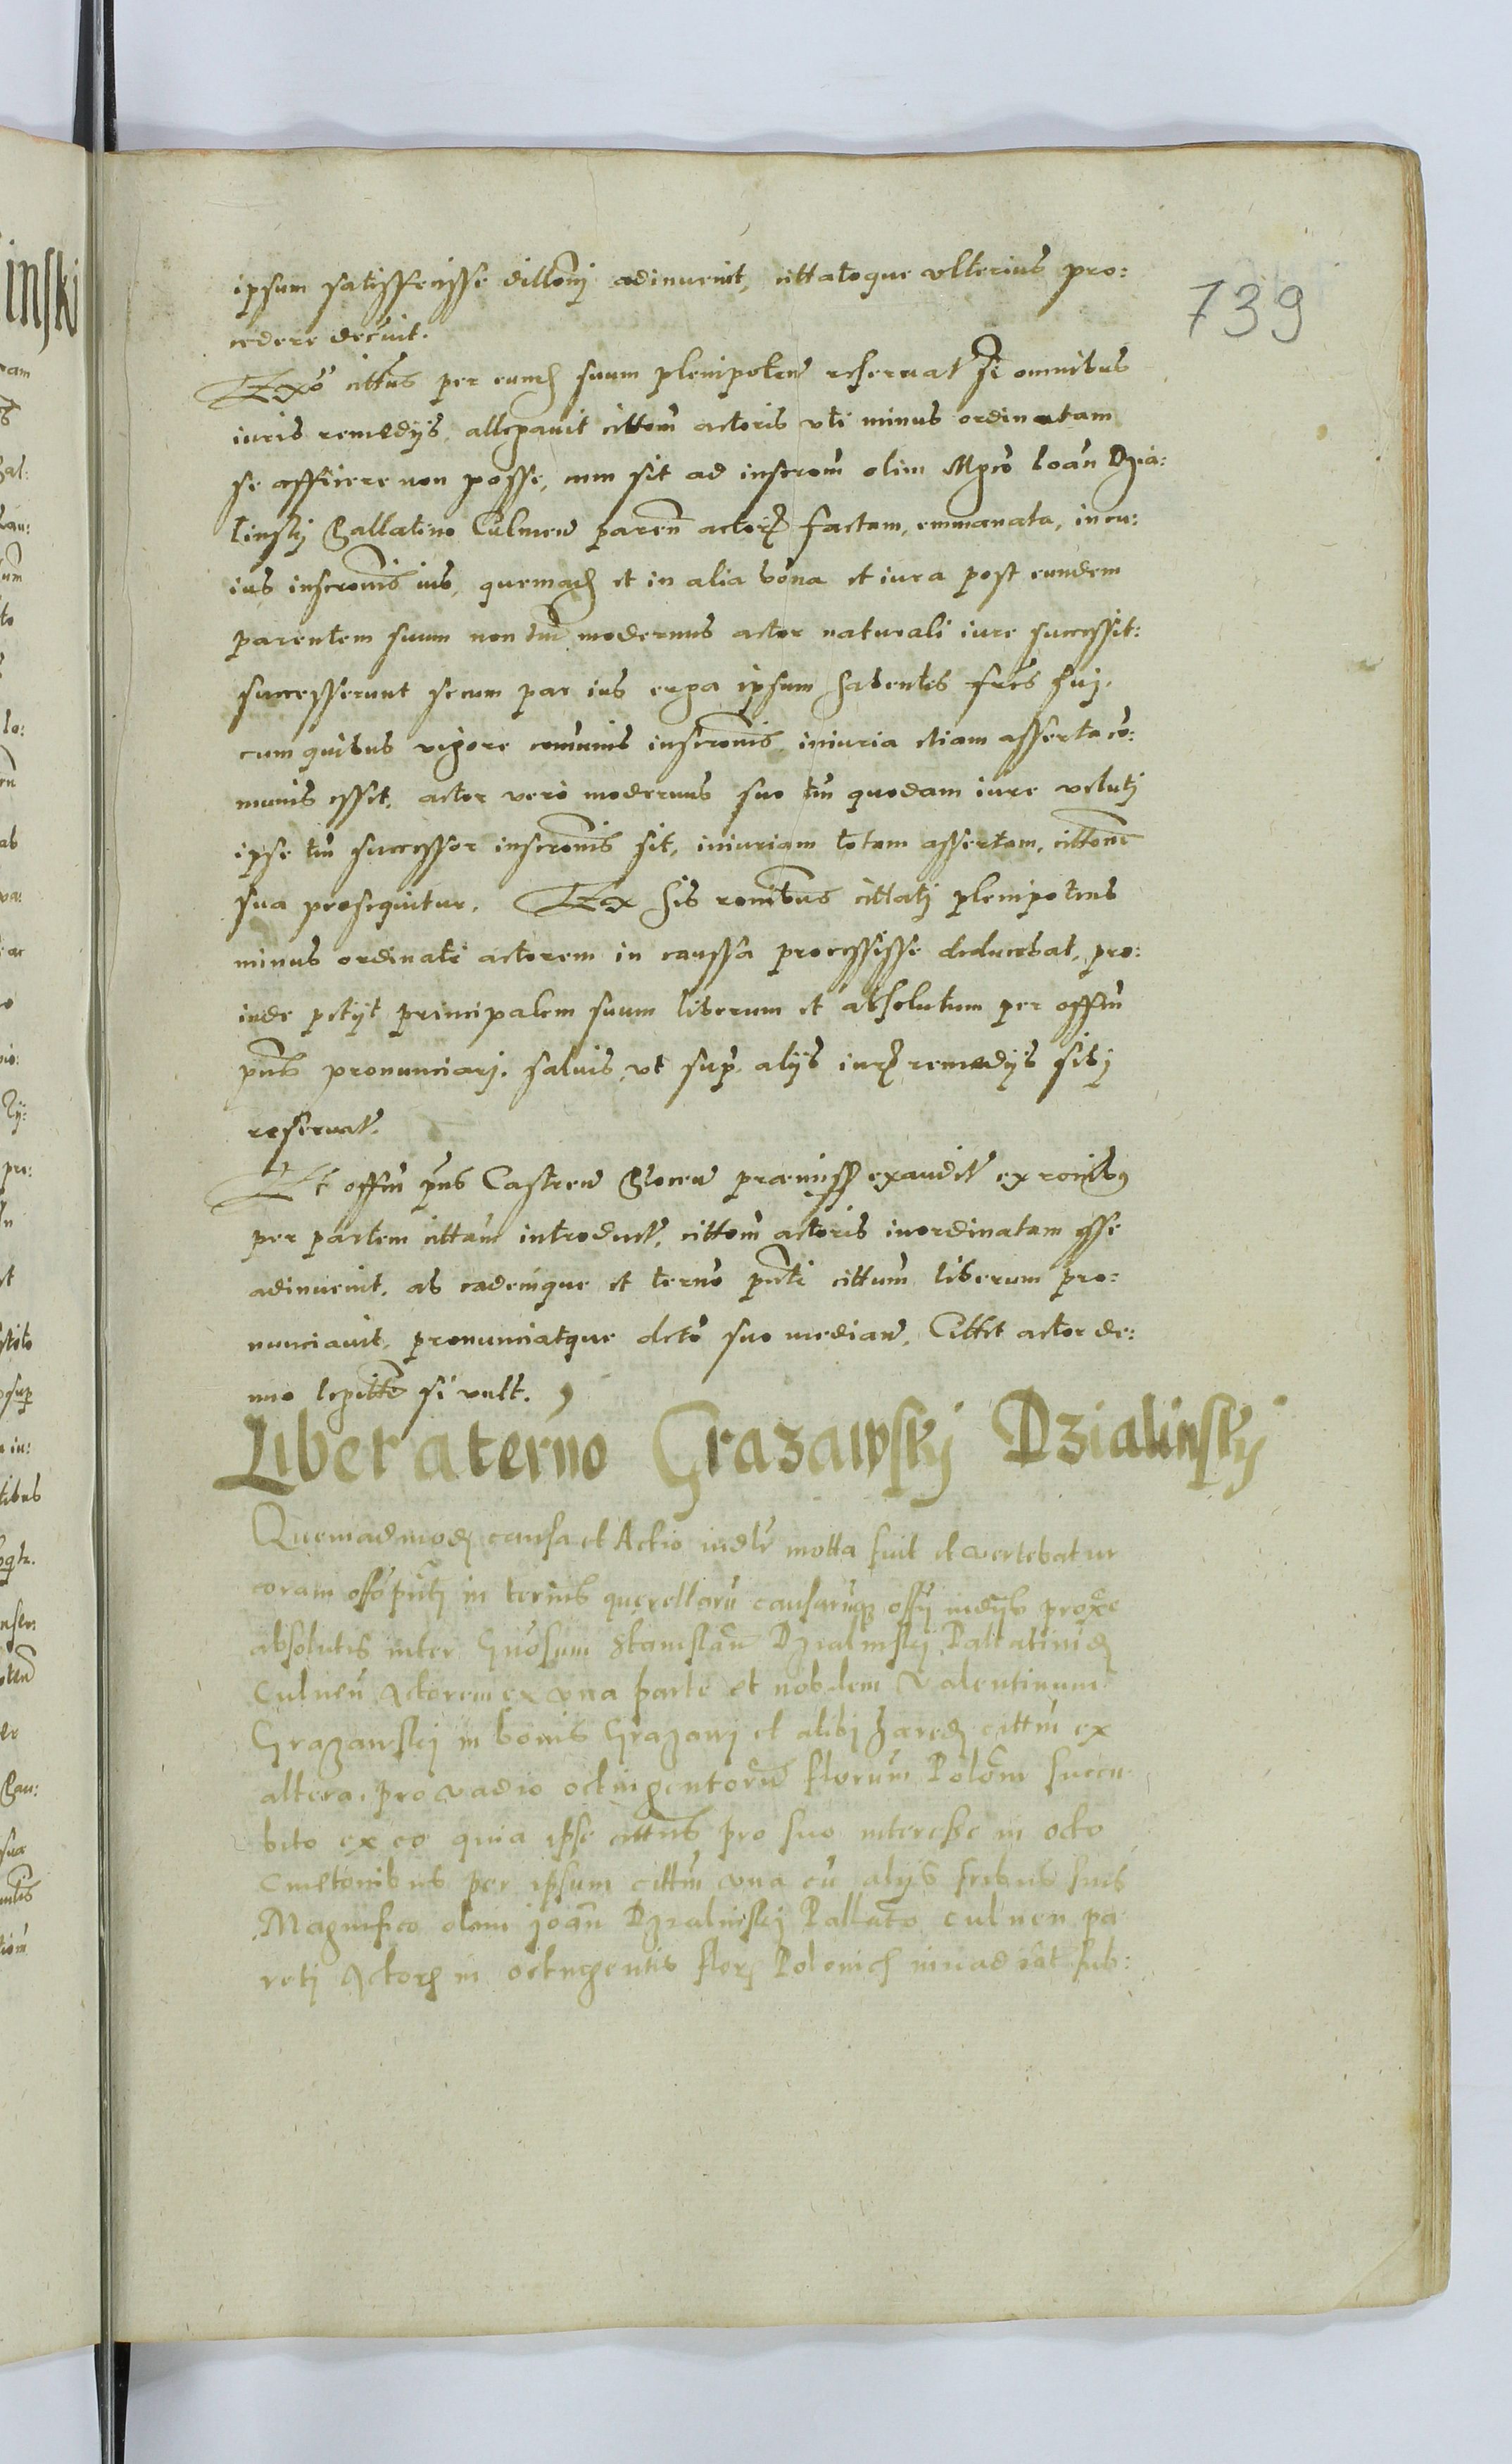 739
ipsum satisfecisse dilloni adinuenit, cittatoque vlterius pro:
cedere decreuit.
Exo citts per eund suum plenipoten reseruat si omnibus
iuris remedijs, allegauit cittom actoris vti minus ordinatam
se afficere non posse, cum sit ad inscrom olim Mgco Ioan Dzia:
linskj Pallatino Culmen paren actoris factam, emmanata, in cu:
ius inscronis ius, quemad et in alia bona et iura post eundem
parentem suum non tm modernus actor naturali iure successit:
successerunt secum par ius erga ipsum habentes fres suj.
cum quibus vigore comunis inscronis iniuria etiam asserta co:
munis esset, actor vero modernus suo tm quodam iure velutj
ipse tm successor inscronis sit, iniuriam totam assertam, cittone
sua prosequitur. Ex his ronibus cittatj plenipotens
minus ordinate actorem in caussa processisse deducebat, pro:
inde petijt principalem suum liberum et absolutum per offm
pns pronunciarj. saluis vt supr alijs iuris remedijs sibj
reseruat.
Et offm pns Castren praemiss exaudit ex ronibus
per partem cittam introduct, cittom actoris inordinatam esse
adinuenit, ab eademque et terno pnti cittum liberum pro:
nunciauit, pronunciatque dcto suo median, Cittet actor de:
nuo legitte si vult.
Liber a terno Grazawskj Dzialinskj
Quemadmod causa et Actio indte motta fuit et vertebatur
coram offo pntj in ternis querellaru causarumq offij indijs proxe
absolutis inter Gnosum Stanislau Dzialinskj Pallatinid
Culmen Actorem ex vna parte et nobilem Valentinum
Grazawskj in bonis Grazawj et alibj hæred cittm ex
altera, pro vadio octingentoru florum Polom succu
bito ex eo quia ipse cittus pro suo interesse in octo
Cmetonibus per ipsum cittm vna cu alijs fribus suis
Magnifico olim Joan Dzialinskj Pallato Culmen pa
retj Actoris in octingentis flor Polonich inuadiat sub: